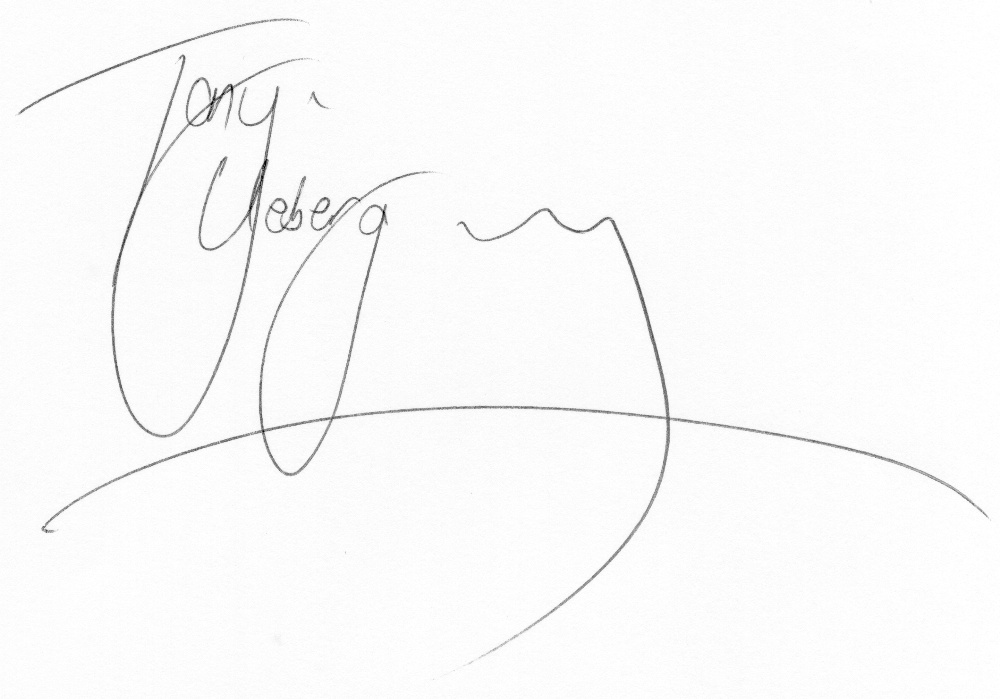 Tony
Yeberg